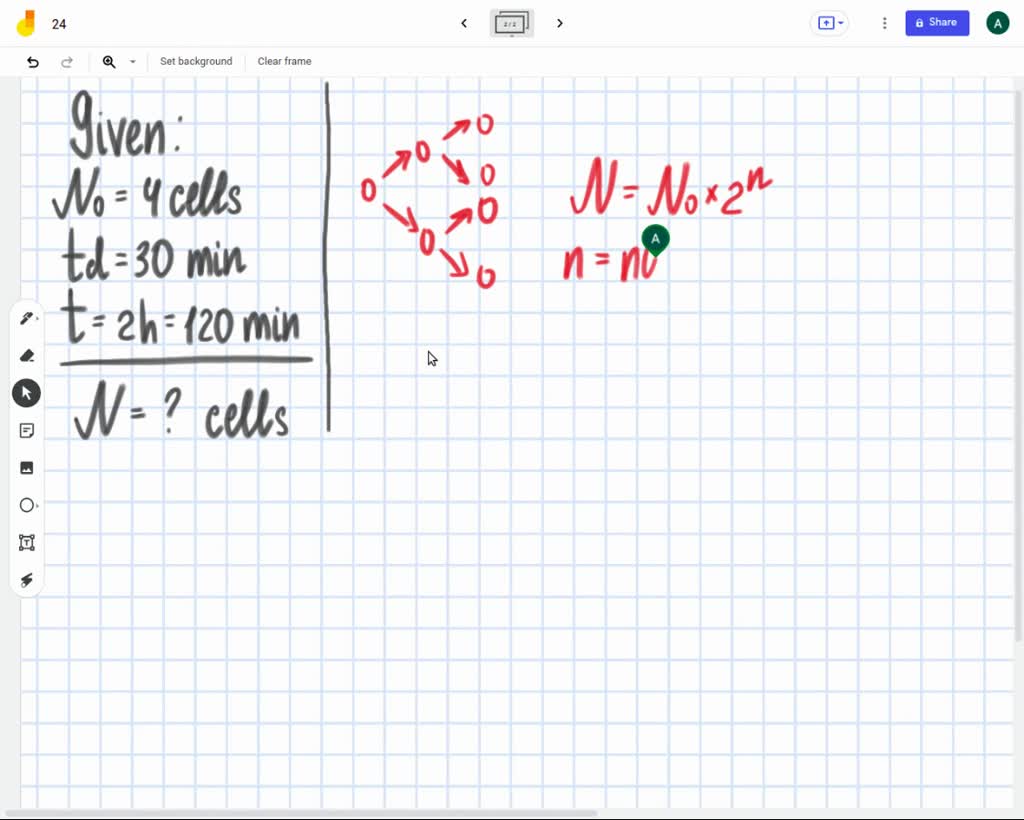 24
2 / 2
Share
A
Set background
Clear frame
Given:
N0 = 4 cells
td = 30 min
t = 2h = 120 min
N = ? cells
N = N0 × 2^n
n =
A